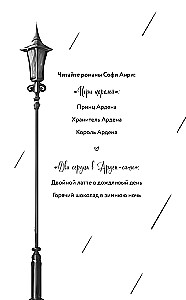 Читайте романы Софи Анри:
«Чары корсаков»:
Принц Ардена
Хранитель Ардена
Король Ардена
«Два сердца в Арден-сити»:
Двойной латте в дождливый день
Горячий шоколад в зимнюю ночь